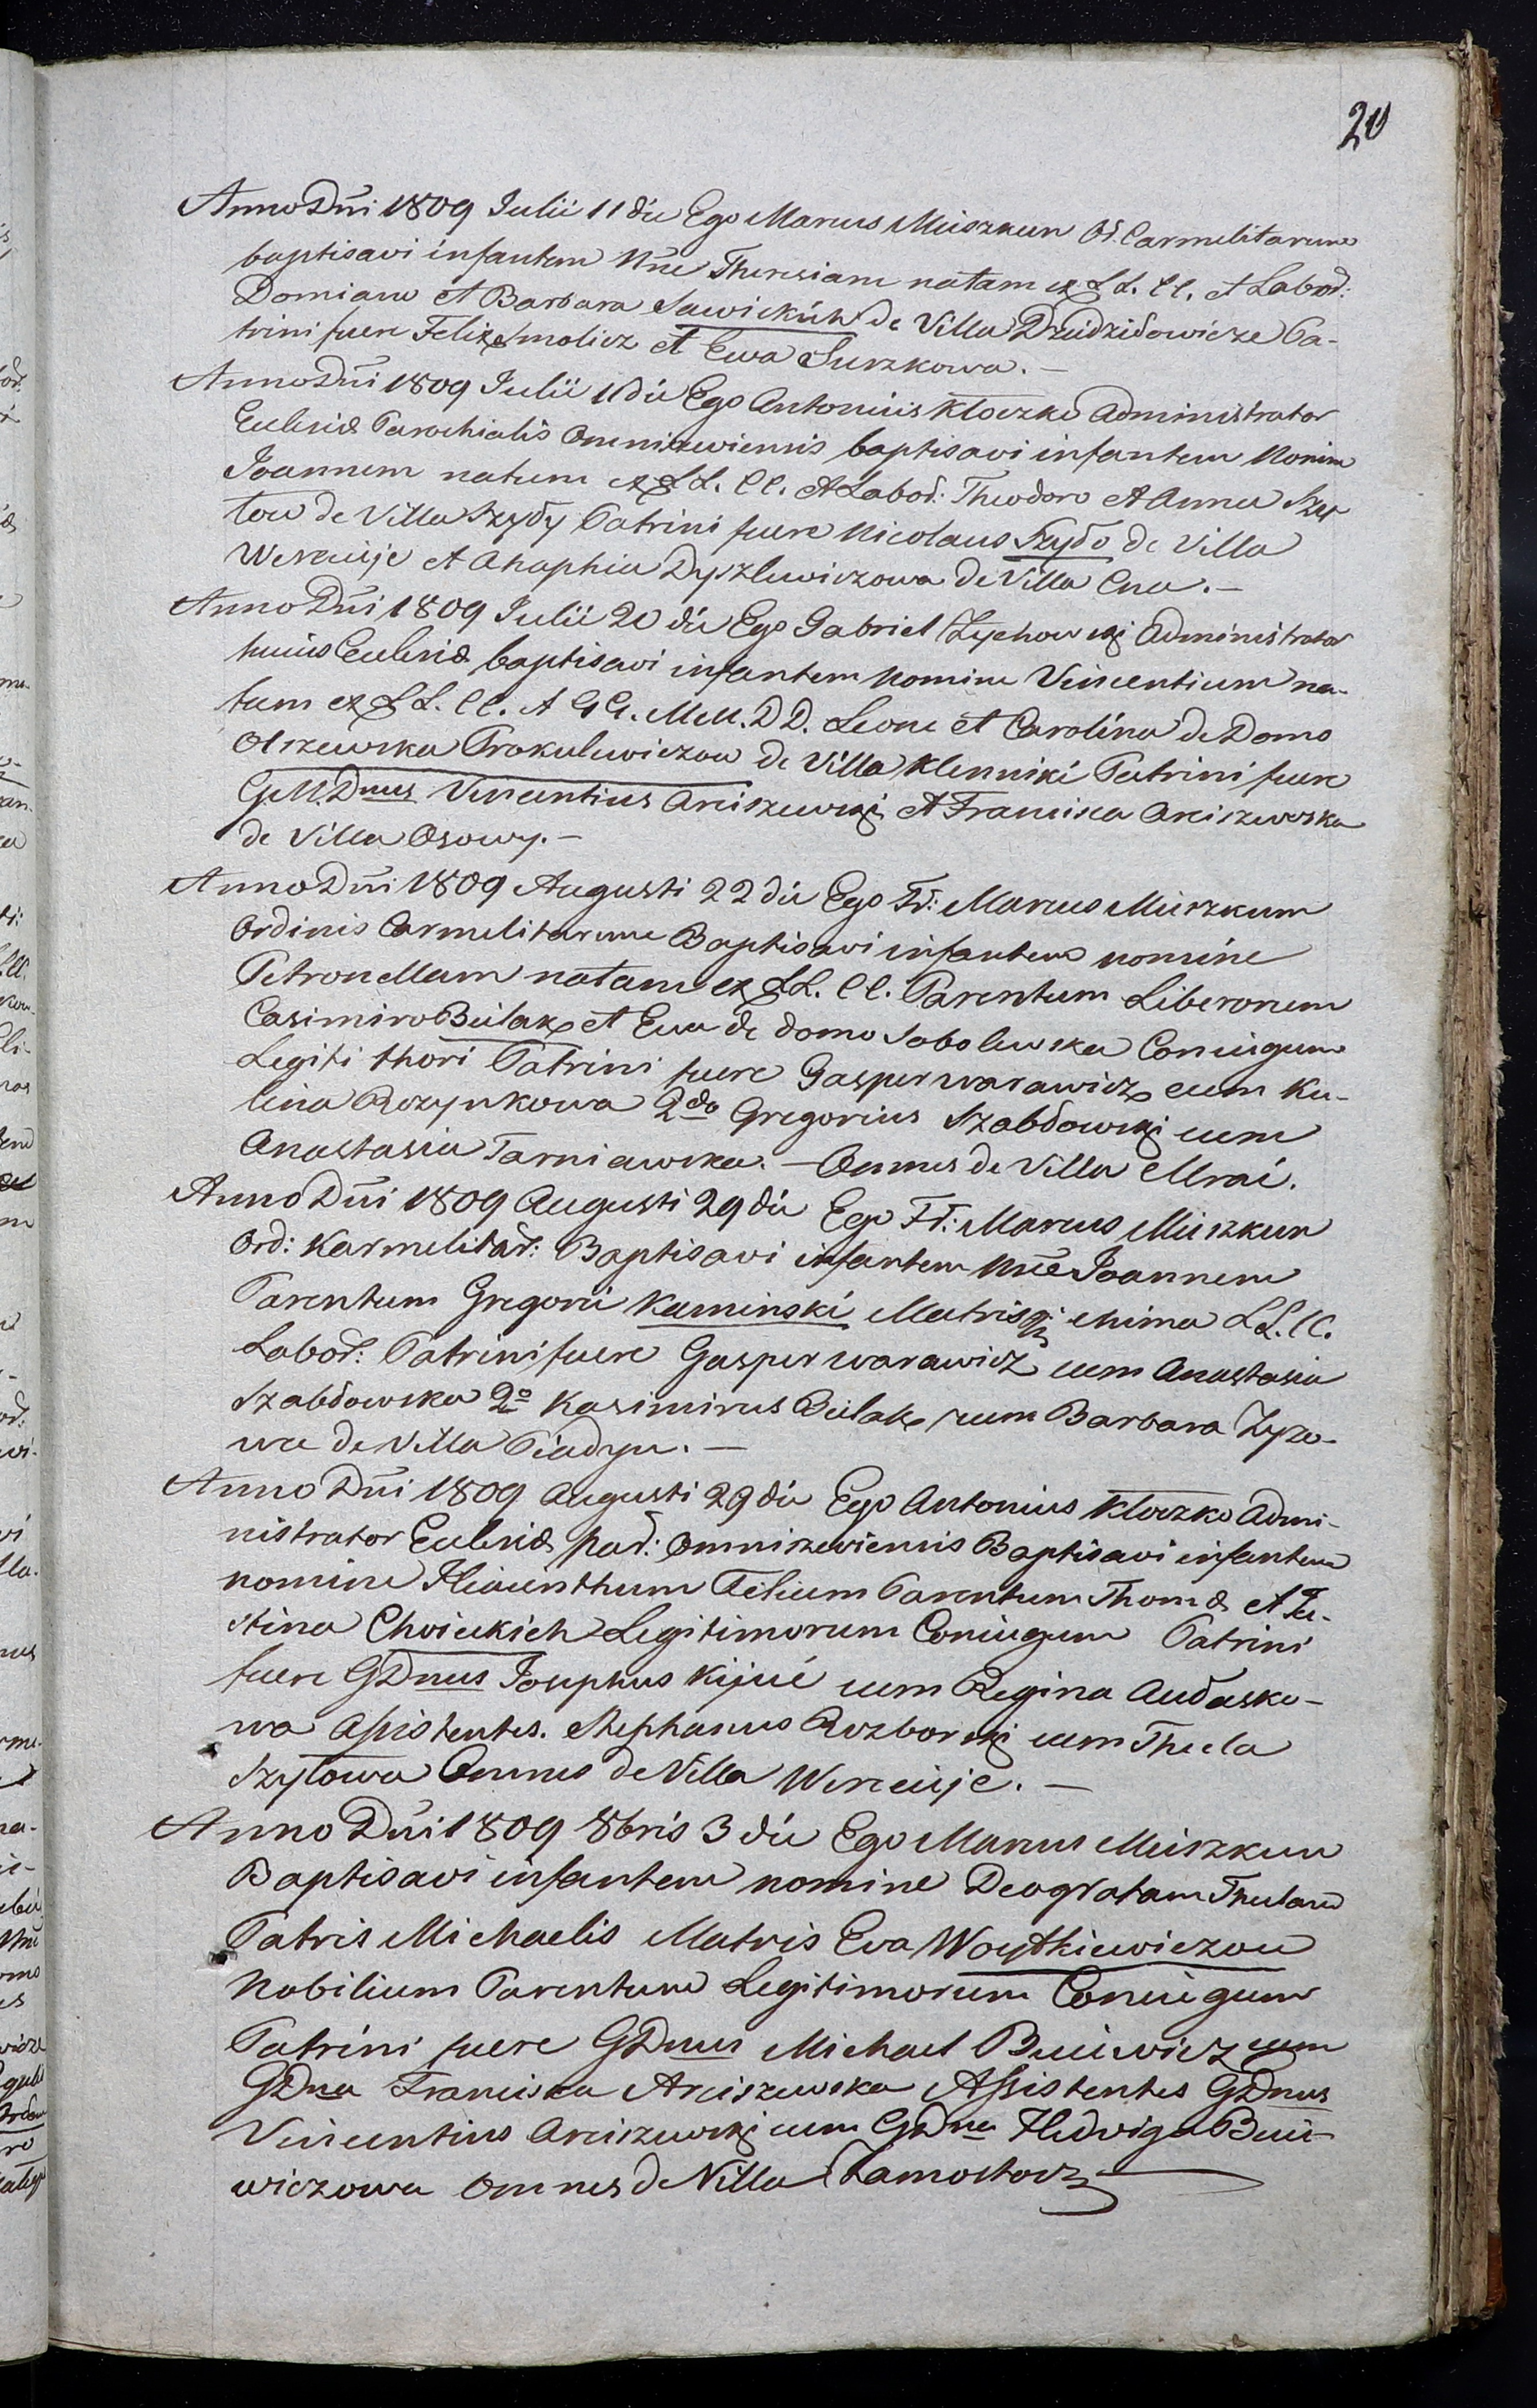 20
Anno Dñi 1809 Julii 11 die Ego Marcus Miiszkun Or. Carmelitarum
baptisavi infantem Nñe Theresiam natam ex LL. CC. et Labor:
Domiano et Barbara Sawickich de Villa Dziedzidowicze Pa-
trini fuere Felix Smolicz et Ewa Surzkowa. —
Anno Dñi 1809 Julii 11 die Ego Antonius Kłoczko Administrator
Ecclesiæ Parochialis Omniszewiensis baptisavi infantem Nomine
Joannem natum ex LL. CC. et Labor: Theodoro et Anna Szy
tow de Villa Szydy Patrini fuere Nicolaus Szydo de Villa
Wereuije et Ahaphia Dyszlewiczowa de Villa Cna. —
Anno Dñi 1809 Julii 20 die Ego Gabriel Zychowski Administrator
huius Ecclesiæ baptisavi infantem Nomine Vincentium na-
tum ex LL. CC. et GG. MM. DD. Leone et Carolina de Domo
Olszewska Prokulewiczow de Villa Klenniki Patrini fuere
G. M. Dnus Vincentius Arciszewski et Francisca Arciszewska
de Villa Osowy. —
Anno Dñi 1809 Augusti 22 die Ego Fr: Marcus Miiszkun
Ordinis Carmelitarum Baptisavi infantem nomine
Petronellam natam ex LL. CC. Parentum Liberorum
Casimiro Bułak et Ewa de domo Sobolewska Coniugum
Legiti thori Patrini fuere Gasper warawicz cum Ku-
lina Rozynkowa 2do Gregorius Szabdowski cum
Anastasia Tarniawska. — Omnes de Villa Mrai.
Anno Dñi 1809 Augusti 29 die Ego Fr: Marcus Miiszkun
Ord: Karmelitar: Baptisavi infantem Nñe Joannem
Parentum Gregorii Kaminski Matrisq: Mima LL. CC.
Labor: Patrini fuere Gasper warawicz cum Anastasia
Szabdowska 2o Kasimirus Bułak cum Barbara Zyzo-
wa de Villa Piadyn. —
Anno Dñi 1809 Augusti 29 die Ego Antonius Kłoczko Admi-
nistrator Ecclesiæ par: Omniszewiensis Baptisavi infantem
nomine Hiacinthum Filium Parentum Thomæ et Ju-
stina Chwieckich Legitimorum Coniugum Patrini
fuere GDnus Josephus Kijuć cum Regina Audasko-
wa Assistentes. Stephanus Rozborski cum Thecla
Szytowa Omnes de Villa Wereuije. —
Anno Dñi 1809 8bris 3 die Ego Marcus Miiszkun
Baptisavi infantem nomine Deogratam Theclam
Patris Michaelis Matris Eva Woytkiewiczow
Nobilium Parentum Legitimorum Coniugum
Patrini fuere GDnus Michael Buiewicz cum
GDna Francisca Arciszewska Assistentes GDnus
Vincentius Arciszewski cum GDna Hedviga Buie-
wiczowa omnes de Villa Zamostocz —